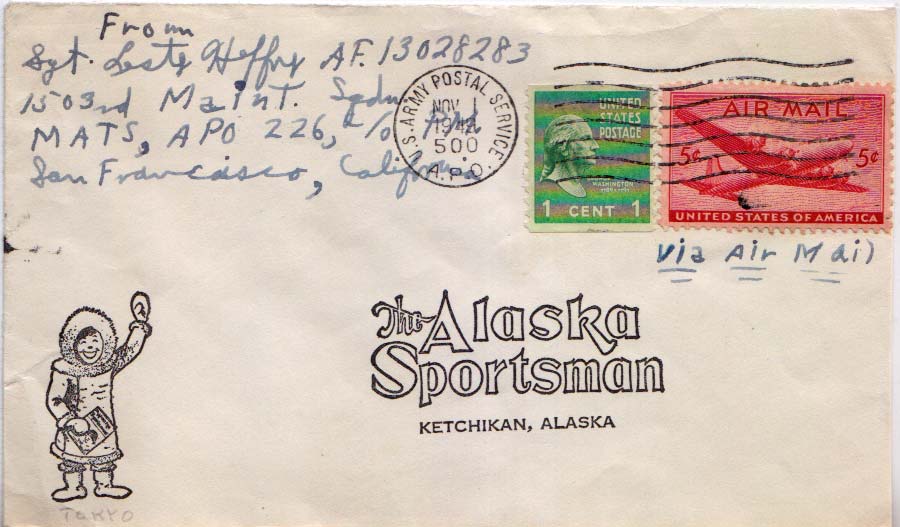 From
Sgt. Leste Heffry AF. 13028283
1503rd Maint. Sqdn
MATS, APO 226, c/o PM
San Francisco, California
U.S. ARMY POSTAL SERVICE
NOV
194
500
A.P.O.
UNITED
STATES
POSTAGE
WASHINGTON
1 CENT 1
AIR MAIL
5¢ 5¢
UNITED STATES OF AMERICA
Via Air Mail
The Alaska
Sportsman
KETCHIKAN, ALASKA
TOKYO